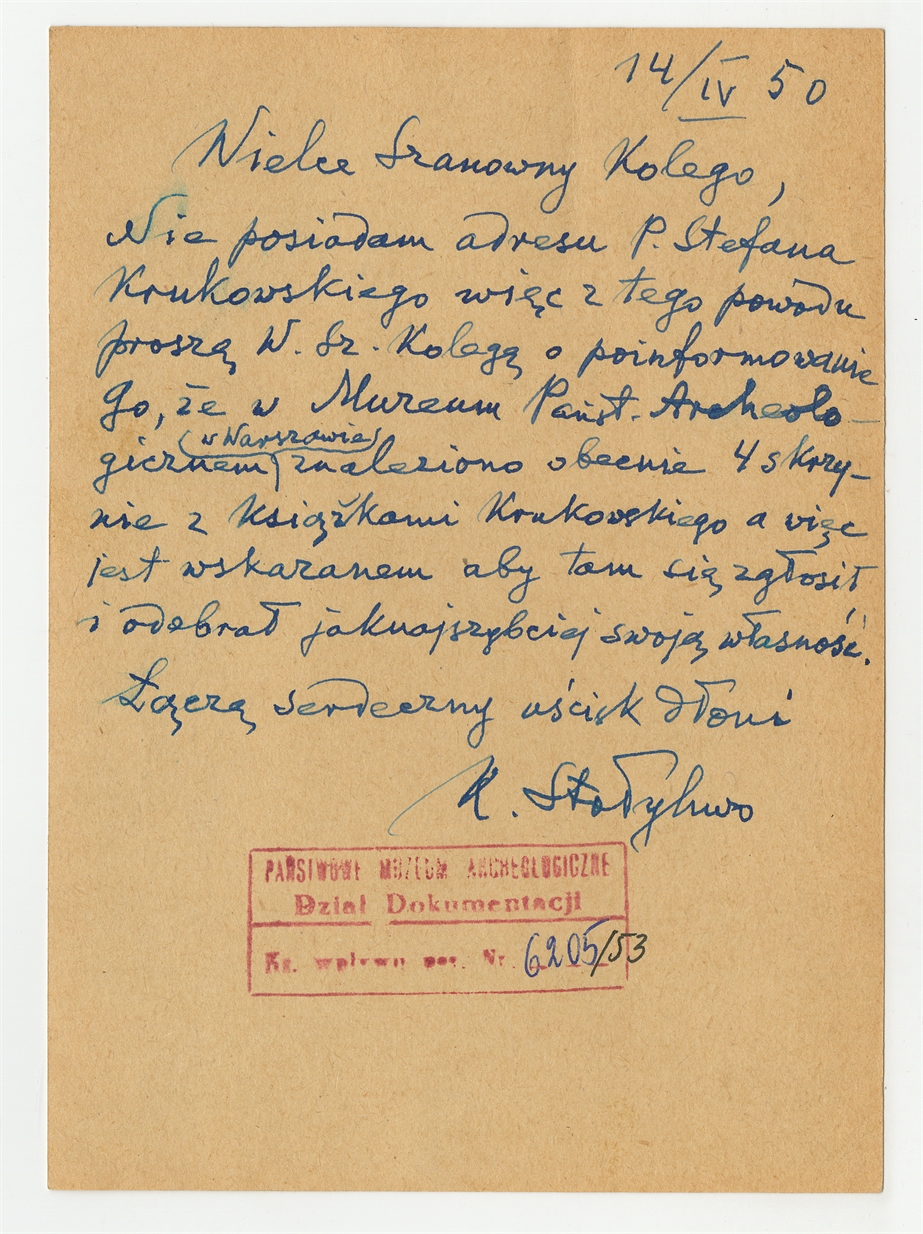 14/IV 50
Wielce Szanowny Kolego,
Nie posiadam adresu P. Stefana
Krukowskiego więc z tego powodu
proszą W. Sz. Kolegą o poinformowanie
go, że w Muzeum Państ. Archeolo-
(w Warszawie)
gicznem znaleziono obecnie 4 skrzy-
nie z książkami Krukowskiego a więc
jest wskazanem aby tam się zgłosił
i odebrał jaknajszybciej swoją własność.
Łączą serdeczny uścisk dłoni
K. Stołyhwo
PAŃSTWOWE MUZEUM ARCHEOLOGICZNE
Dział Dokumentacji
Ks. wpływu poz. Nr. 6205/53